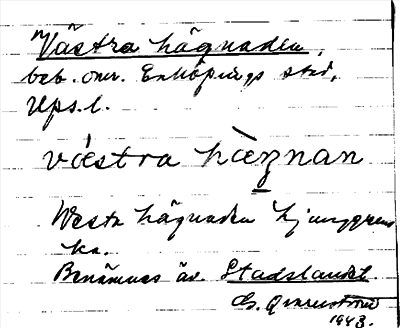 "Västra hägnaden,
beb. omr. Enköpings stad,
Ups. l.
västra hägnan
Westr hägnaden Ljunggrens
ka.
Benämnes äv. Stadslandet.
1943.